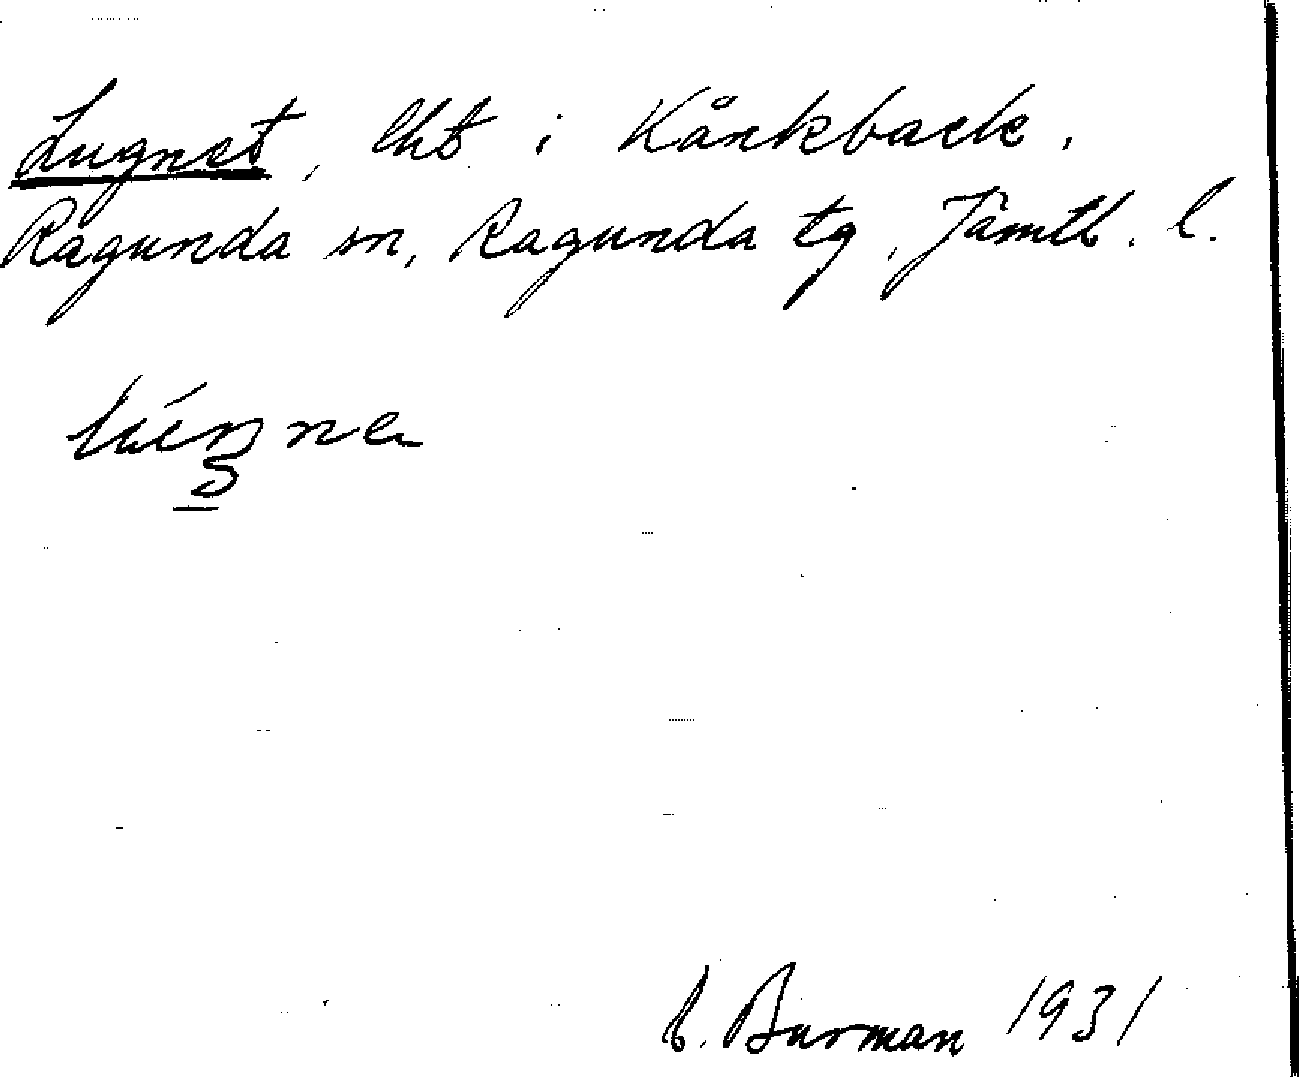 Lugnet, lht i Kånkback,
Ragunda sn, Ragunda tg, Jämtl. l.
B. Burman 1931